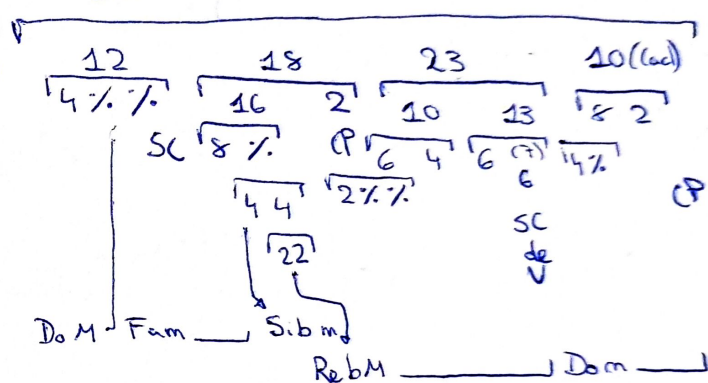 12 18 23 10 (Cad)
4 % % 16 2 10 13 8 2
SC 8 % CP 6 4 6 (7) 4 %
6
4 4 2 % % CP
SC
22 de
V
Do M Fa m Sib m
Reb M Do m